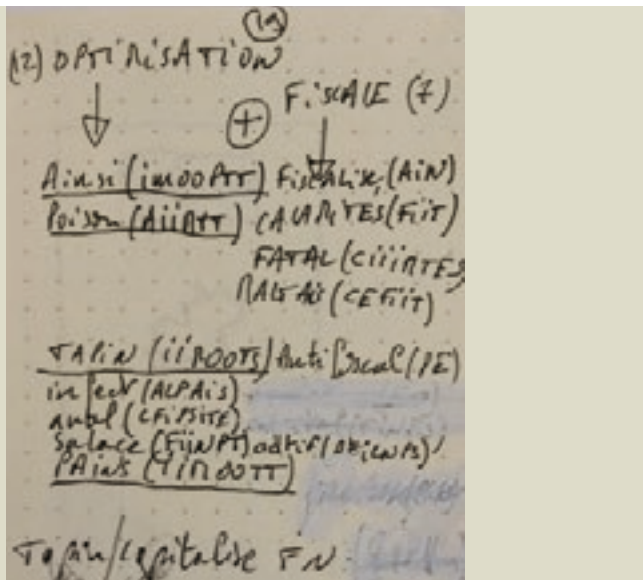 19
(12) OPTIMISATION
+ FISCALE (7)
Ainsi (imOOPTT) Fiscalise (AiN)
Poison (AiiMTT) CALAMiTES (FiiT)
FATAL (CiiiMTES)
MALTAiS (CEFiiT)
TAPiN (iiMOOTS) Anti fiscal (PE)
infect (ALPAiS)
anal (CFiPSiTE)
Salace (FiiNPT)
PAiNS (TiMOOTT)
Tapin/Capitalise FN